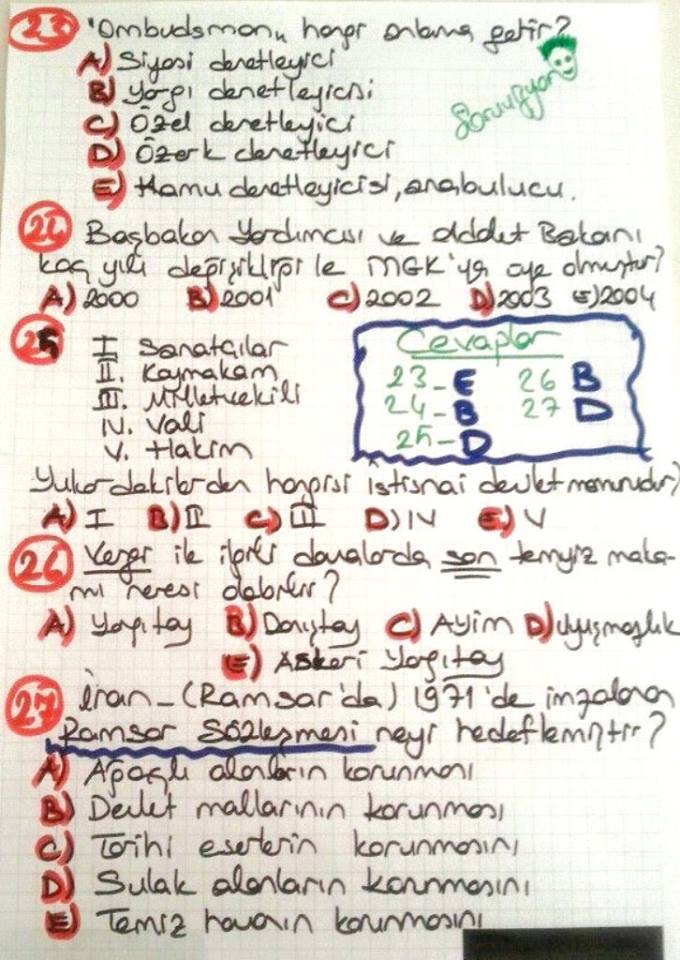 23 'Ombudsman' hangi anlama gelir?
Soruyyon
A) Siyasi denetleyici
B) Yargı denetleyicisi
C) Özel denetleyici
D) Özerk denetleyici
E) Kamu denetleyicisi, arabulucu.
24 Başbakan Yardımcısı ve Adalet Bakanı
kaç yılı değişikliği ile MGK'ya üye olmuştur?
A) 2000 B) 2001 C) 2002 D) 2003 E) 2004
25 I Sanatçılar
II. Kaymakam
III. Milletvekili
IV. Vali
V. Hakim
Cevaplar
23-E 26 B
24-B 27 D
25-D
Yukardakilerden hangisi istisnai devlet memurudur?
A) I B) II C) III D) IV E) V
26 Vergi ile ilgili davalarda son temyiz maka-
mı neresi olabilir?
A) Yargıtay B) Danıştay C) AYİM D) Uyuşmazlık
E) Askeri Yargıtay
27 İran-(Ramsar'da) 1971'de imzalanan
Ramsar Sözleşmesi neyi hedeflemiştir?
A) Ağaçlı alanların korunması
B) Devlet mallarının korunması
C) Tarihi eserlerin korunmasını
D) Sulak alanların korunmasını
E) Temiz havanın korunmasını